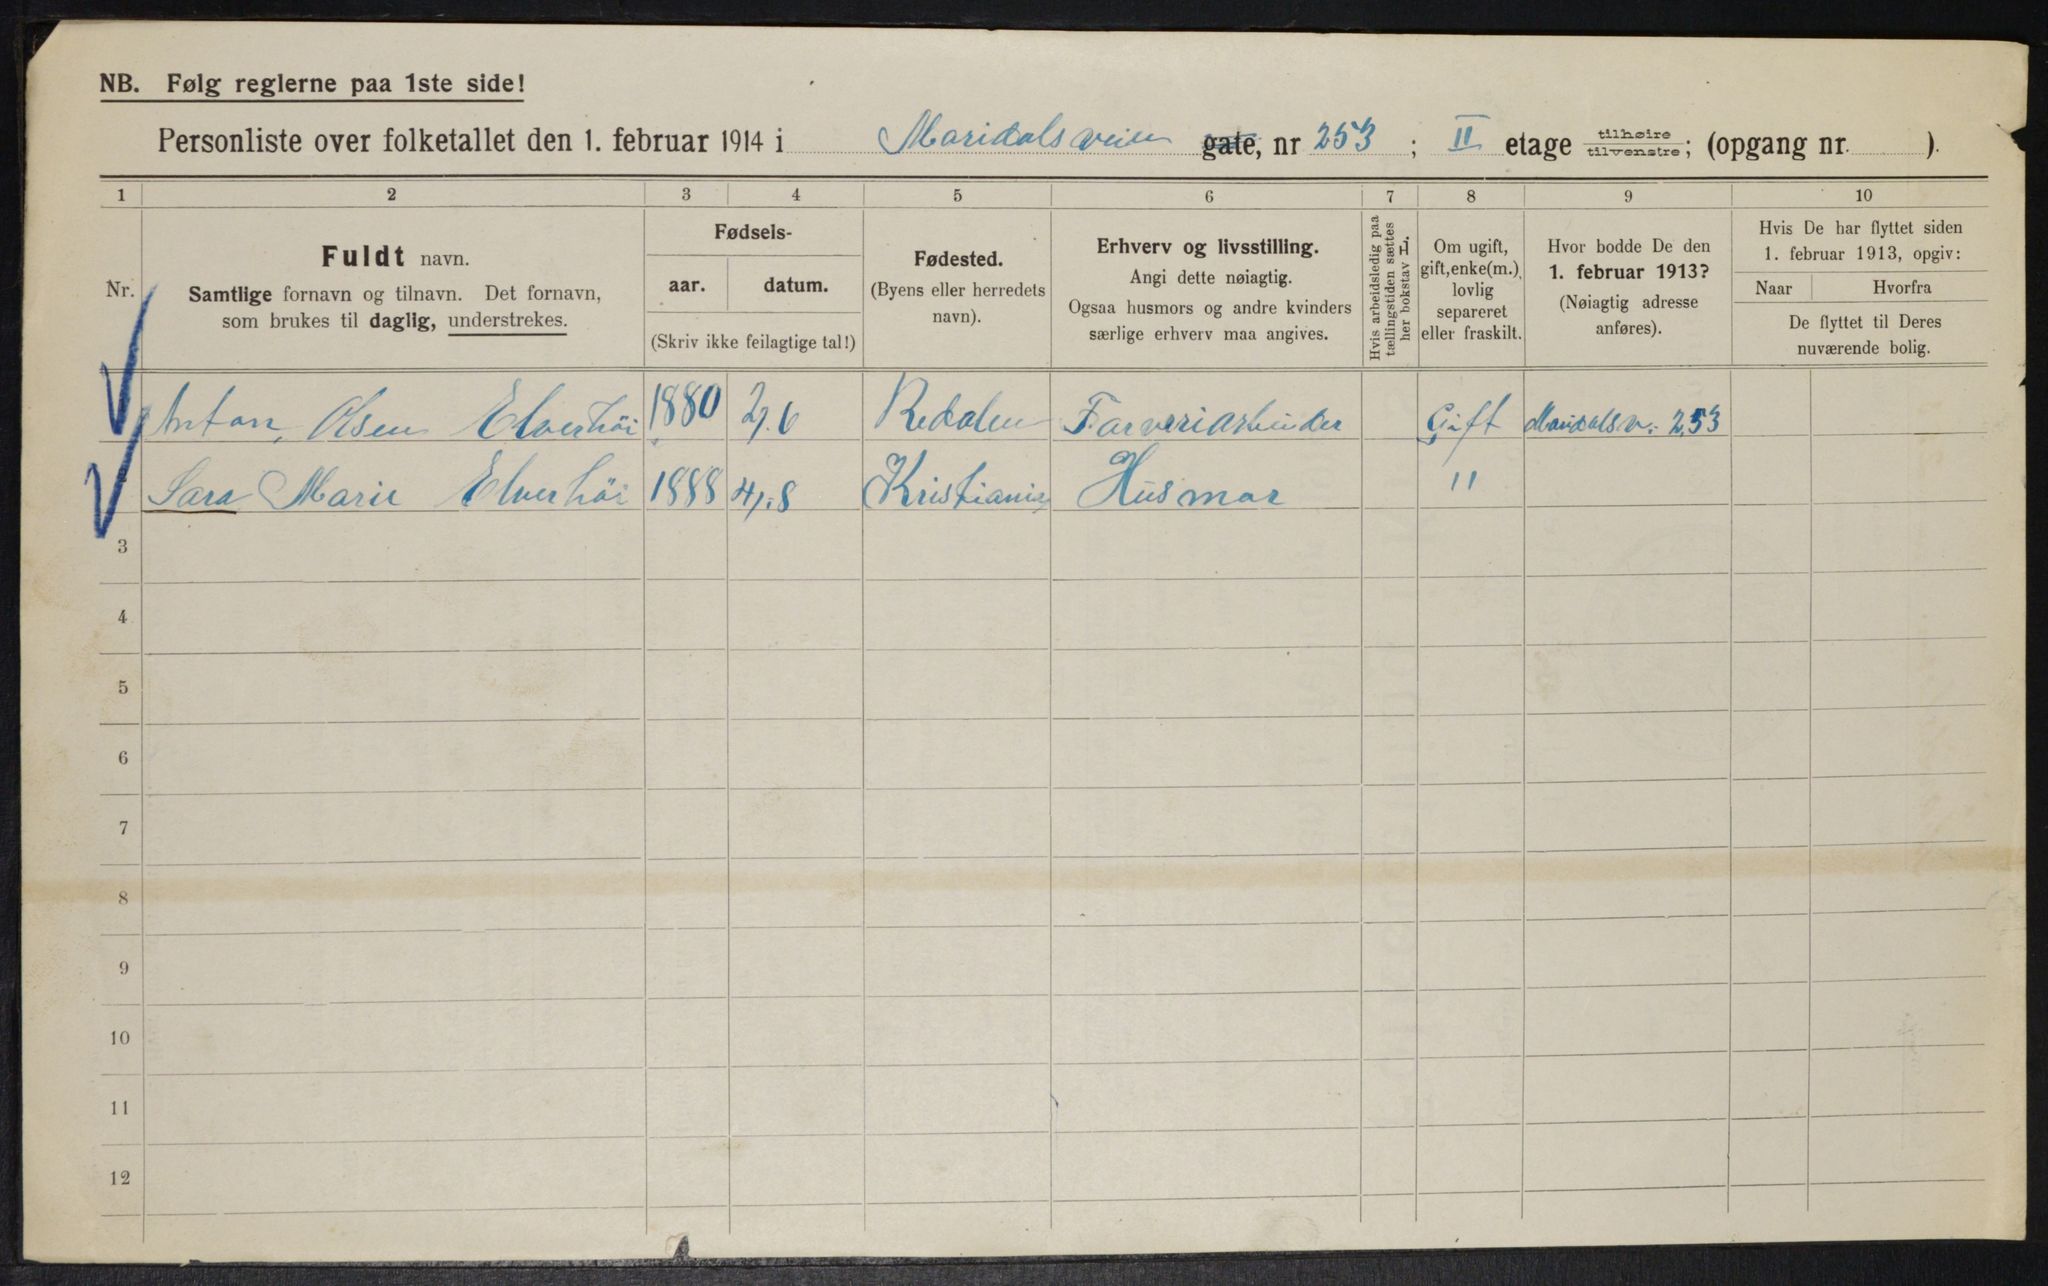 NB. Følg reglerne paa 1ste side!
Personliste over folketallet den 1. februar 1914 i Maridalsveien gate, nr 253; II etage tilhøire tilvenstre; (opgang nr. ).
1 2 3 4 5 6 7 8 9 10
Nr.
Fuldt navn.
Samtlige fornavn og tilnavn. Det fornavn,
som brukes til daglig, understrekes.
Fødsels-
aar. datum.
(Skriv ikke feilagtige tal!)
Fødested.
(Byens eller herredets
navn).
Erhverv og livsstilling.
Angi dette nøiagtig.
Ogsaa husmors og andre kvinders
særlige erhverv maa angives.
Hvis arbeidsledig paa
tællingstiden sættes
her bokstav L.
Om ugift,
gift, enke(m.),
lovlig
separeret
eller fraskilt.
Hvor bodde De den
1. februar 1913?
(Nøiagtig adresse
anføres).
Hvis De har flyttet siden
1. februar 1913, opgiv:
Naar Hvorfra
De flyttet til Deres
nuværende bolig.
Anton, Olsen Elverhöi 1880 2/6 Redalen Farveriarbeider Gift Maridalsv. 253
Sara Marie Elverhöi 1888 4/8 Kristiania Husmor "
3
4
5
6
7
8
9
10
11
12